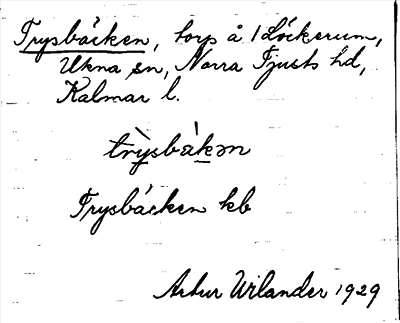 Frysbäcken, torp å 1 Löckerum,
Ukna sn, Norra Tjusts hd,
Kalmar l.
Frysbäcken kb
Artur Wilander 1929